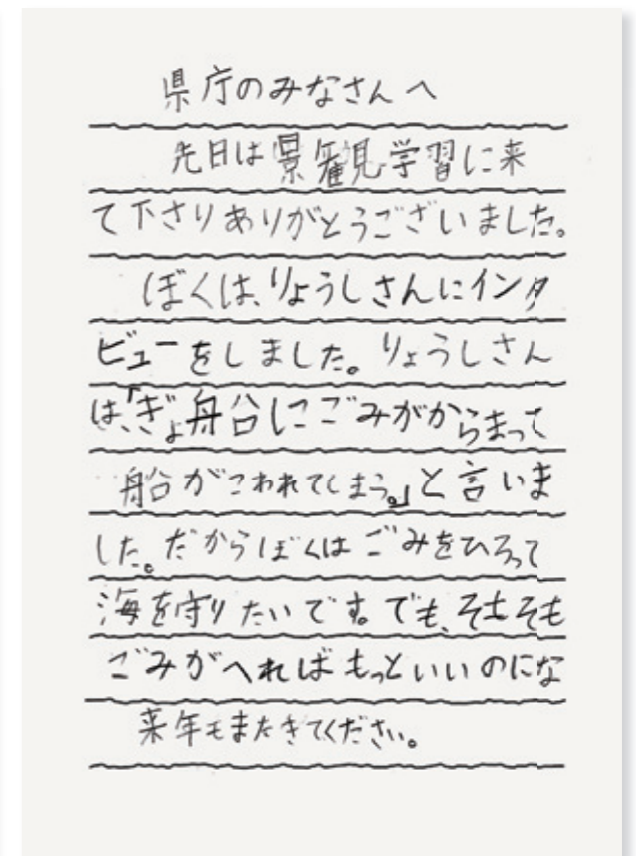 県庁のみなさんへ
先日は景観見学習に来
て下さりありがとうございました。
ぼくは、りょうしさんにインタ
ビューをしました。りょうしさん
は、「ぎょ船にごみがからまって
船がこわれてしまう。」と言いま
した。だからぼくはごみをひろって
海を守りたいです。でも、そもそも
ごみがへればもっといいのにな
来年もまたきてください。